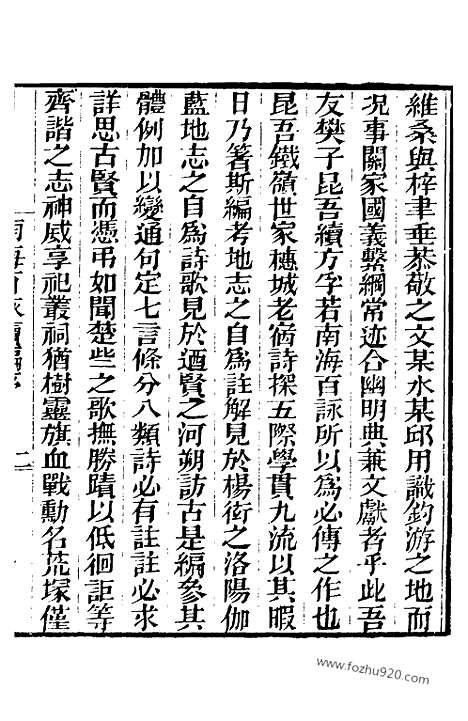 維桑與梓聿垂恭敬之文某水某邱用識釣游之地而
况事關家國義繫綱常迹合幽明典兼文獻者乎此吾
友樊子昆吾續方孚若南海百詠所以為必傳之作也
昆吾鐵嶺世家穗城老宿詩探五際學貫九流以其暇
日乃箸斯編考地志之自為註解見於楊衒之洛陽伽
藍地志之自為詩歌見於迺賢之河朔訪古是編參其
體例加以變通句定七言條分八類詩必有註註必求
詳思古賢而憑弔如聞楚些之歌撫勝蹟以低徊詎等
齊諧之志神威享祀叢祠猶樹靈旗血戰勳名荒塚僅
南海百詠續編序 二
www.fozhu920.com